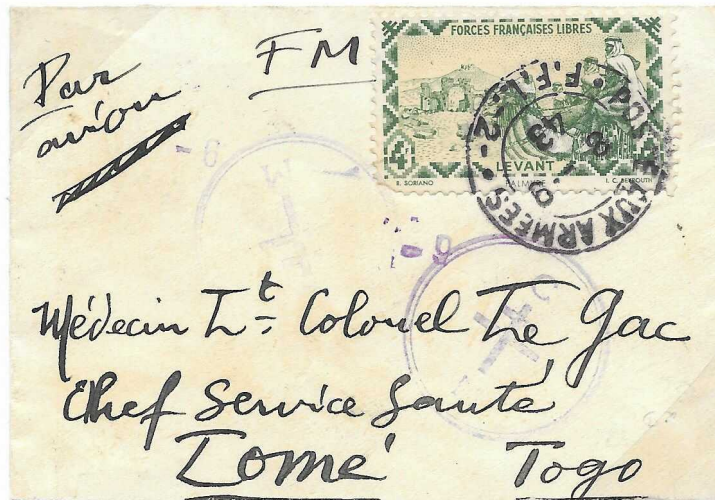 Par
avion
FM
FORCES FRANÇAISES LIBRES
4F
LEVANT
POSTE AUX ARMEES
F.F.L.-2
43
Médecin Lt Colonel Le Gac
Chef Service Santé
Lomé Togo